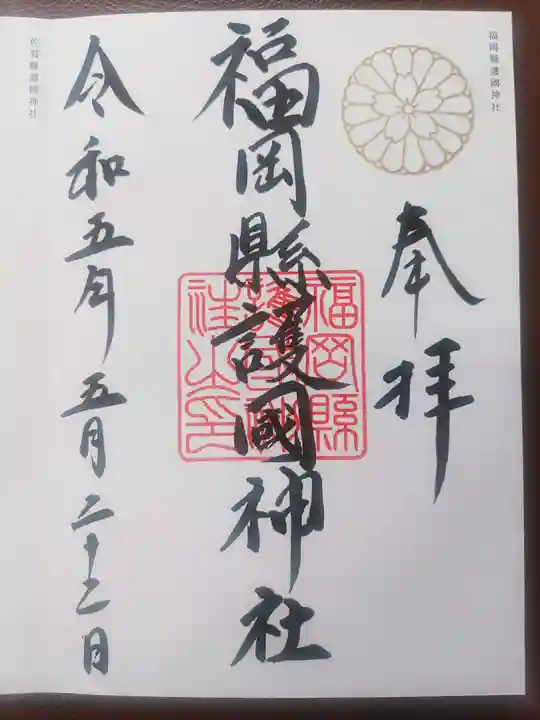 福岡縣護國神社
奉拝
福岡縣護國神社
令和五年五月二十二日
佐賀縣護國神社